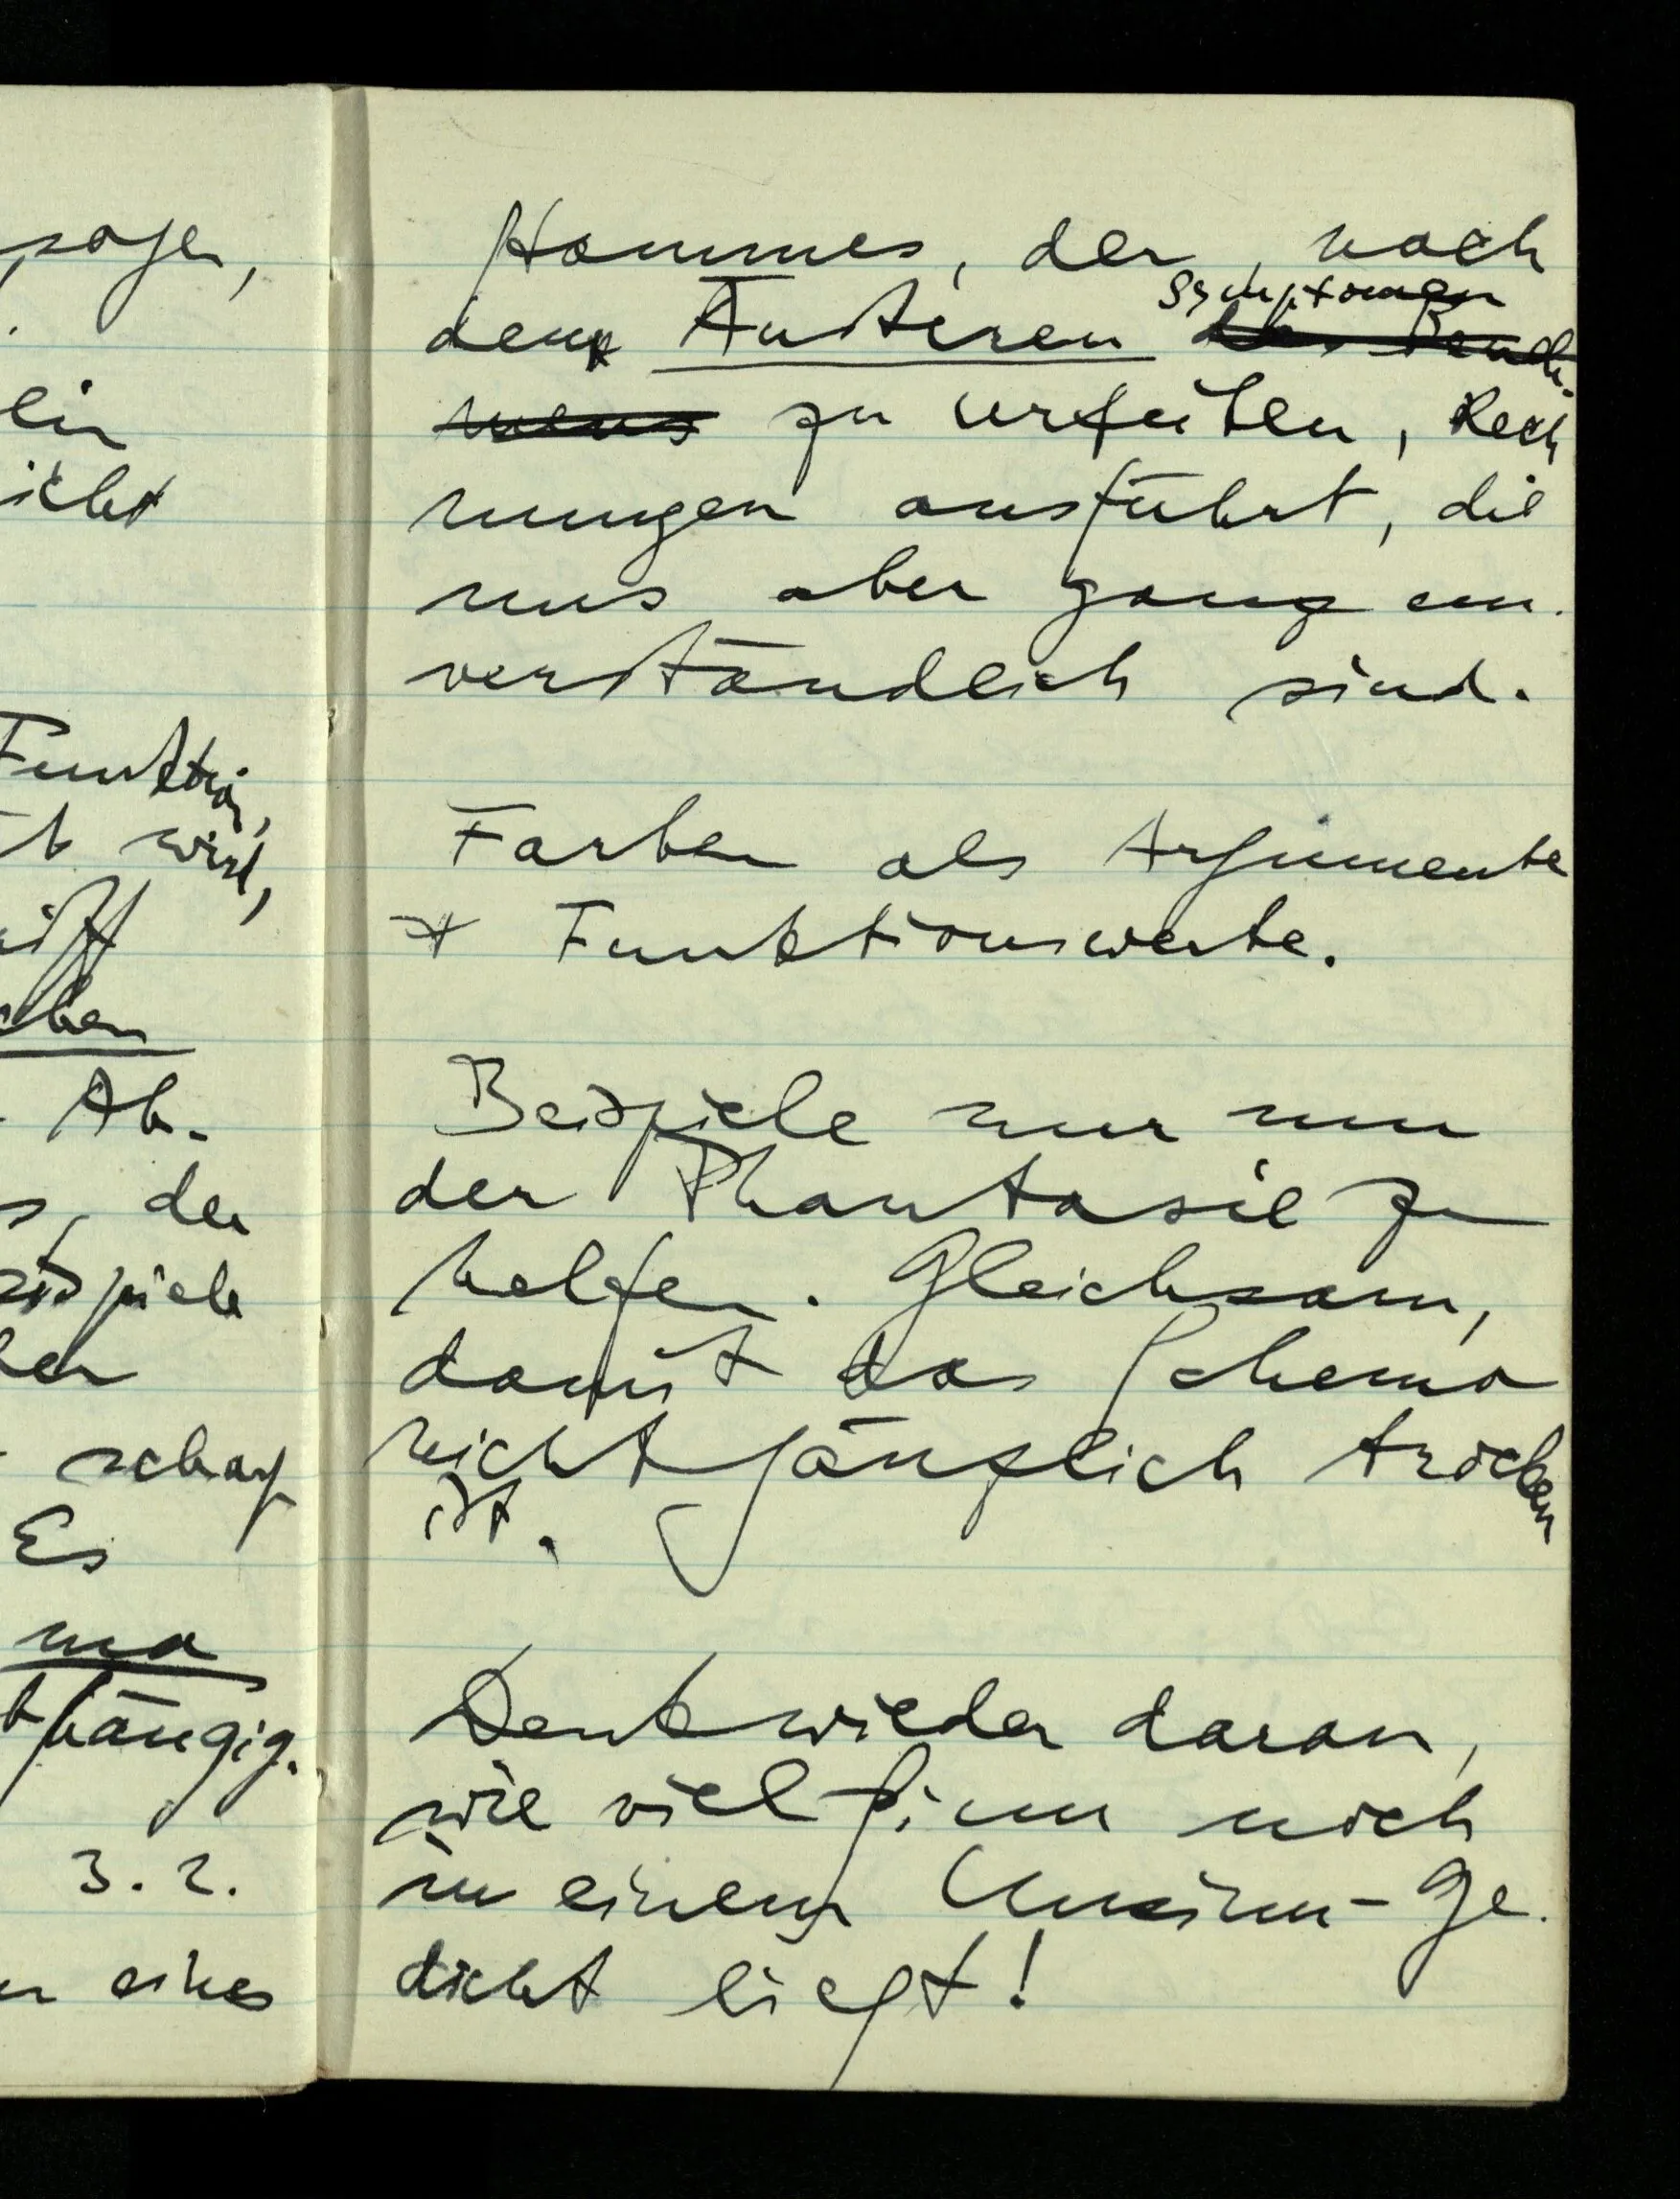 sagen,
.
ein
icht
Funktion,
t wird,
eift
chen
Ab-
s, der
eispiele
der
schaf
Es
ma
bhängig.
3.2.
n eines
Stammes, der, nach
den Äußeren Symptomen
des Beneh-
mens zu urteilen, Rech
nungen ausführt, die
uns aber ganz un-
verständlich sind.
Farben als Argumente
+ Funktionswerte.
Beispiele nur um
der Phantasie zu
helfen. Gleichsam,
damit das Schema
nicht gänzlich trocken
ist.
Denk wieder daran,
wie viel Sinn noch
in einem Unsinn-Ge-
dicht liegt!